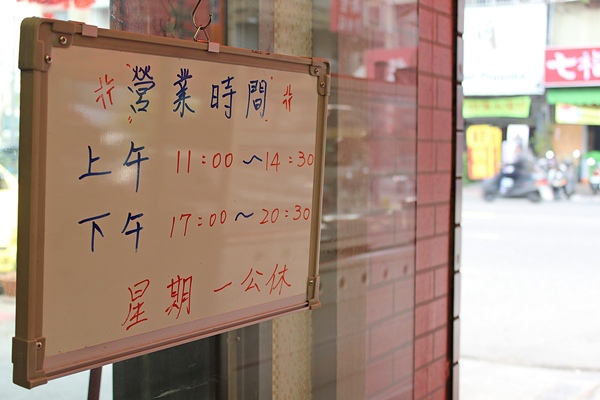 #營業時間#
上午 11:00~14:30
下午 17:00~20:30
星期一公休